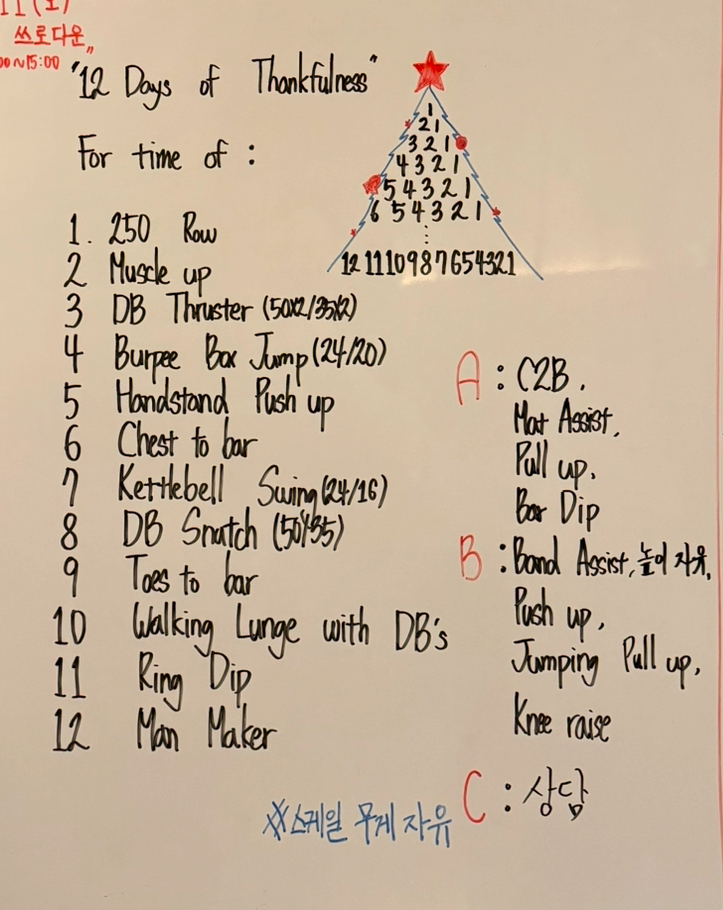 쓰로다운„
~15:00
"12 Days of Thankfulness"
For time of :
1
2 1
3 2 1
4 3 2 1
5 4 3 2 1
6 5 4 3 2 1
⋮
12 11 10 9 8 7 6 5 4 3 2 1
1. 250 Row
2 Muscle up
3 DB Thruster (50x2/35x2)
4 Burpee Box Jump (24/20)
5 Handstand Push up
6 Chest to bar
7 Kettlebell Swing (24/16)
8 DB Snatch (50/35)
9 Toes to bar
10 Walking Lunge with DB's
11 Ring Dip
12 Man Maker
A : C2B.
Mat Assist.
Pull up.
Bar Dip
B : Band Assist, 높이 자유,
Push up,
Jumping Pull up,
Knee raise
C : 상담
※스케일 무게 자유